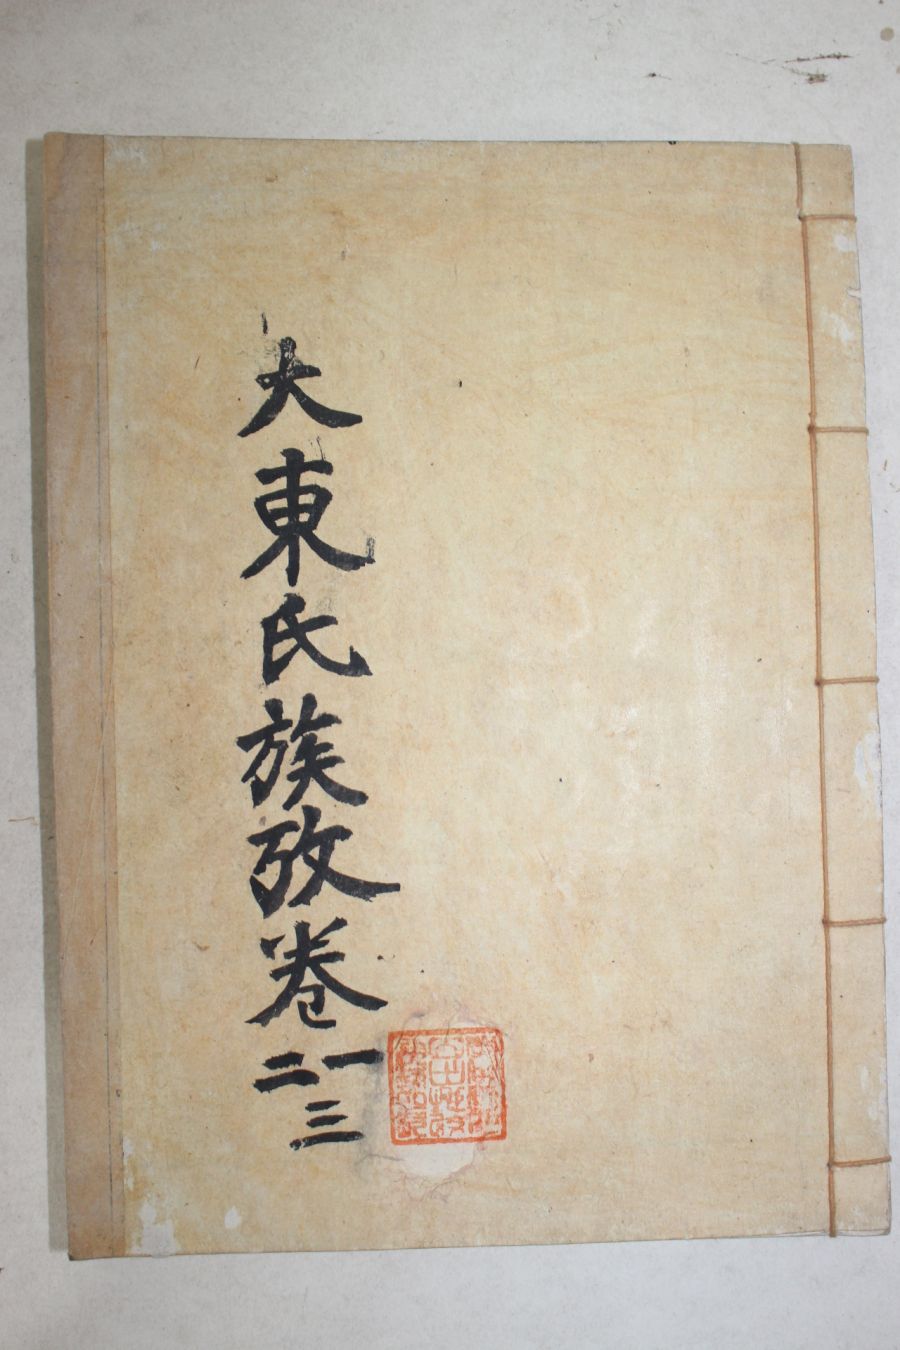 大東氏族攷卷一二三